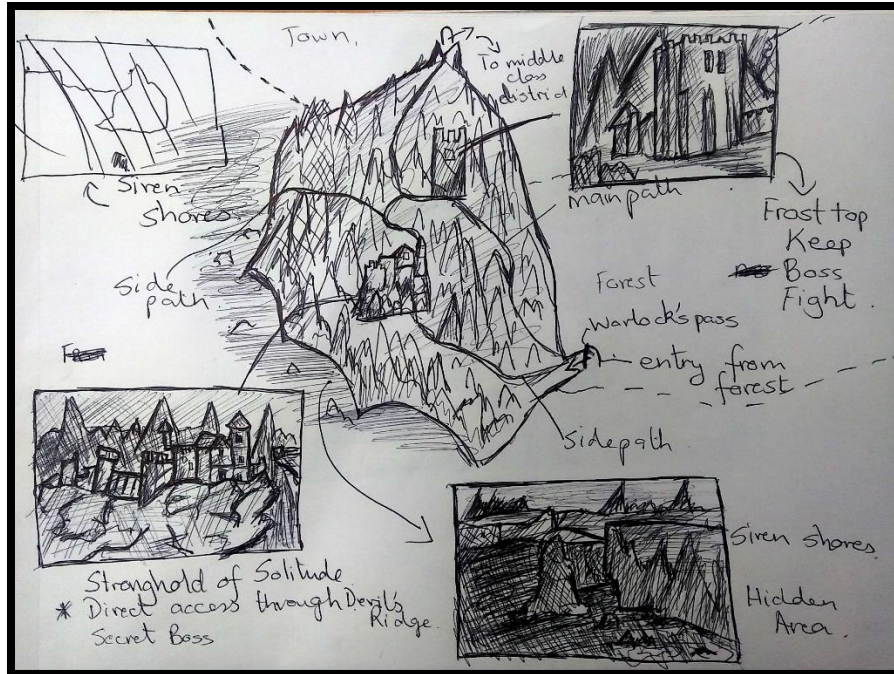 Town,
To middle
class
district
Siren
shores
main path
Frost top
Keep
Boss
Fight.
side
path
Forest
Warlock's pass
entry from
forest
sidepath
Stronghold of Solitude
* Direct access through Devil's
Ridge.
Secret Boss
Siren shores
Hidden
Area.